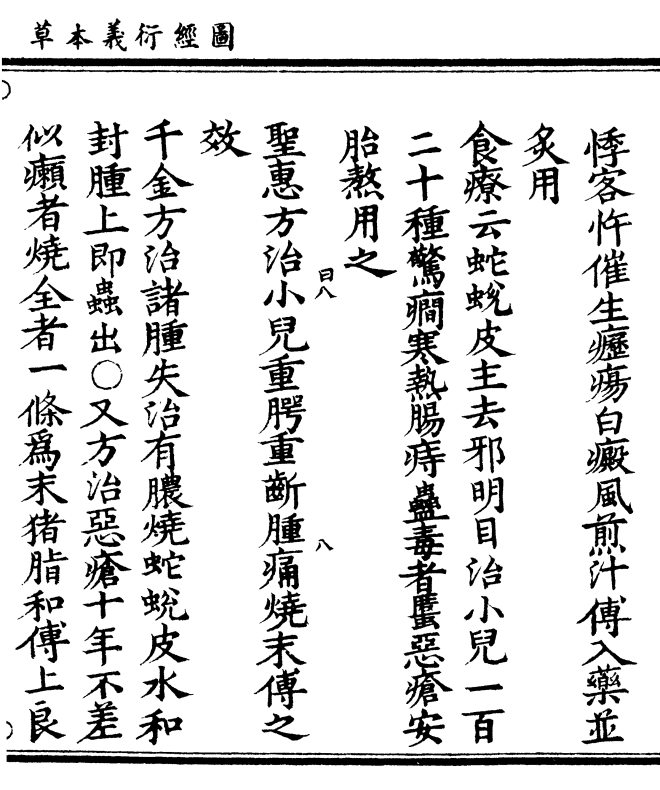 圖經衍義本草
悸客忤催生癧瘍白癜風煎汁傅入藥並
炙用
食療云蛇蛻皮主去邪明目治小兒一百
二十種驚癇寒熱腸痔蠱毒者䘌惡瘡安
胎熬用之
聖惠方治小兒重腭重齗腫痛燒末傅之
效
千金方治諸腫失治有膿燒蛇蛻皮水和
封腫上即蟲出○又方治惡瘡十年不差
似癩者燒全者一條爲末猪脂和傅上良
曰八
八